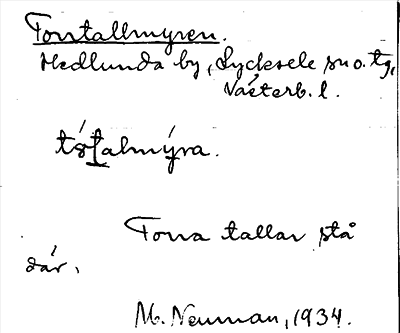 Torrtallmyren.
Hedlunda by, Lycksele sn o. tg,
Västerb. l.
tó̱ṯalmy̗ra.
Torra tallar stå
där.
M. Neuman, 1934.